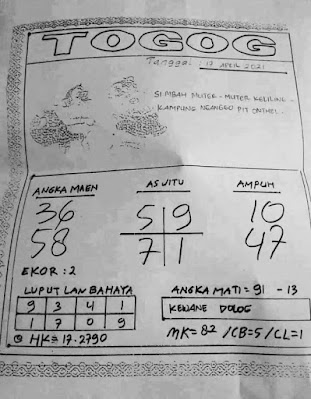 TOGOG
Tanggal : 17 APRIL 2021
SIMBAH MUTER - MUTER KELILING -
KAMPUNG NGANGGO PIT ONTHEL -
ANGKA MAEN AS JITU AMPUH
36 5 9 10
58 7 1 47
EKOR : 2
LUPUT LAN BAHAYA ANGKA MATI = 91 - 13
9 3 4 1
1 7 0 9
HK = 17.2790 MK = 82 / CB = 5 / CL = 1